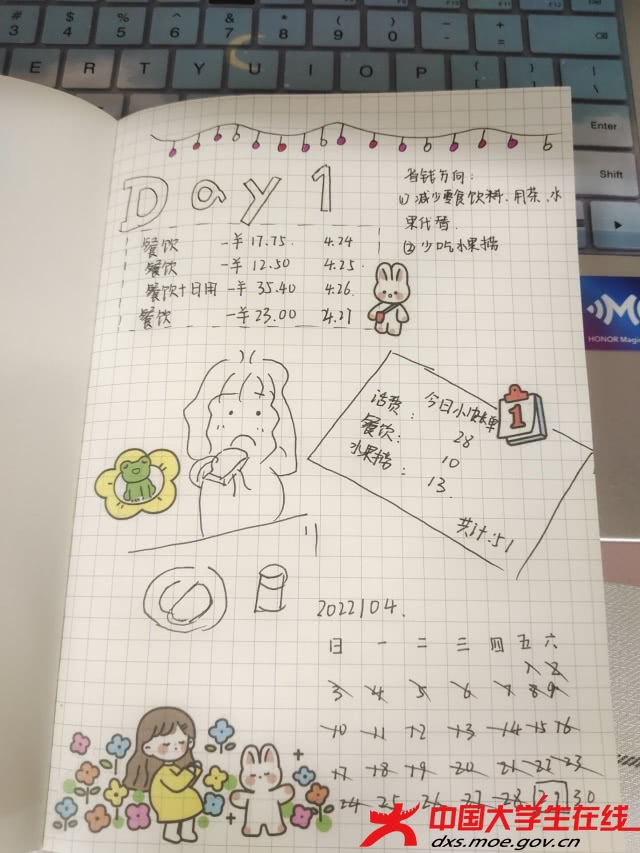 # 3
$ 4
% 5
^ 6
& 7
* 8
( 9
) 0
E R T Y U I O P
Enter
Shift
HONOR Magic
Day 1
餐饮 -¥17.75. 4.24
餐饮 -¥12.50 4.25.
餐饮+日用 -¥35.40 4.26.
餐饮 -¥23.00 4.27
省钱方向:
(1) 减少零食饮料.用茶、水
果代替.
(2) 少吃水果捞
1
今日小账单
话费: 28
餐饮: 10
水果捞: 13.
共计:51
2022/04.
日 一 二 三 四 五 六
1 2
3 4 5 6 7 8 9
10 11 12 13 14 15 16
17 18 19 20 21 22 23
24 25 26 27 28 29 30
中国大学生在线
dxs.moe.gov.cn